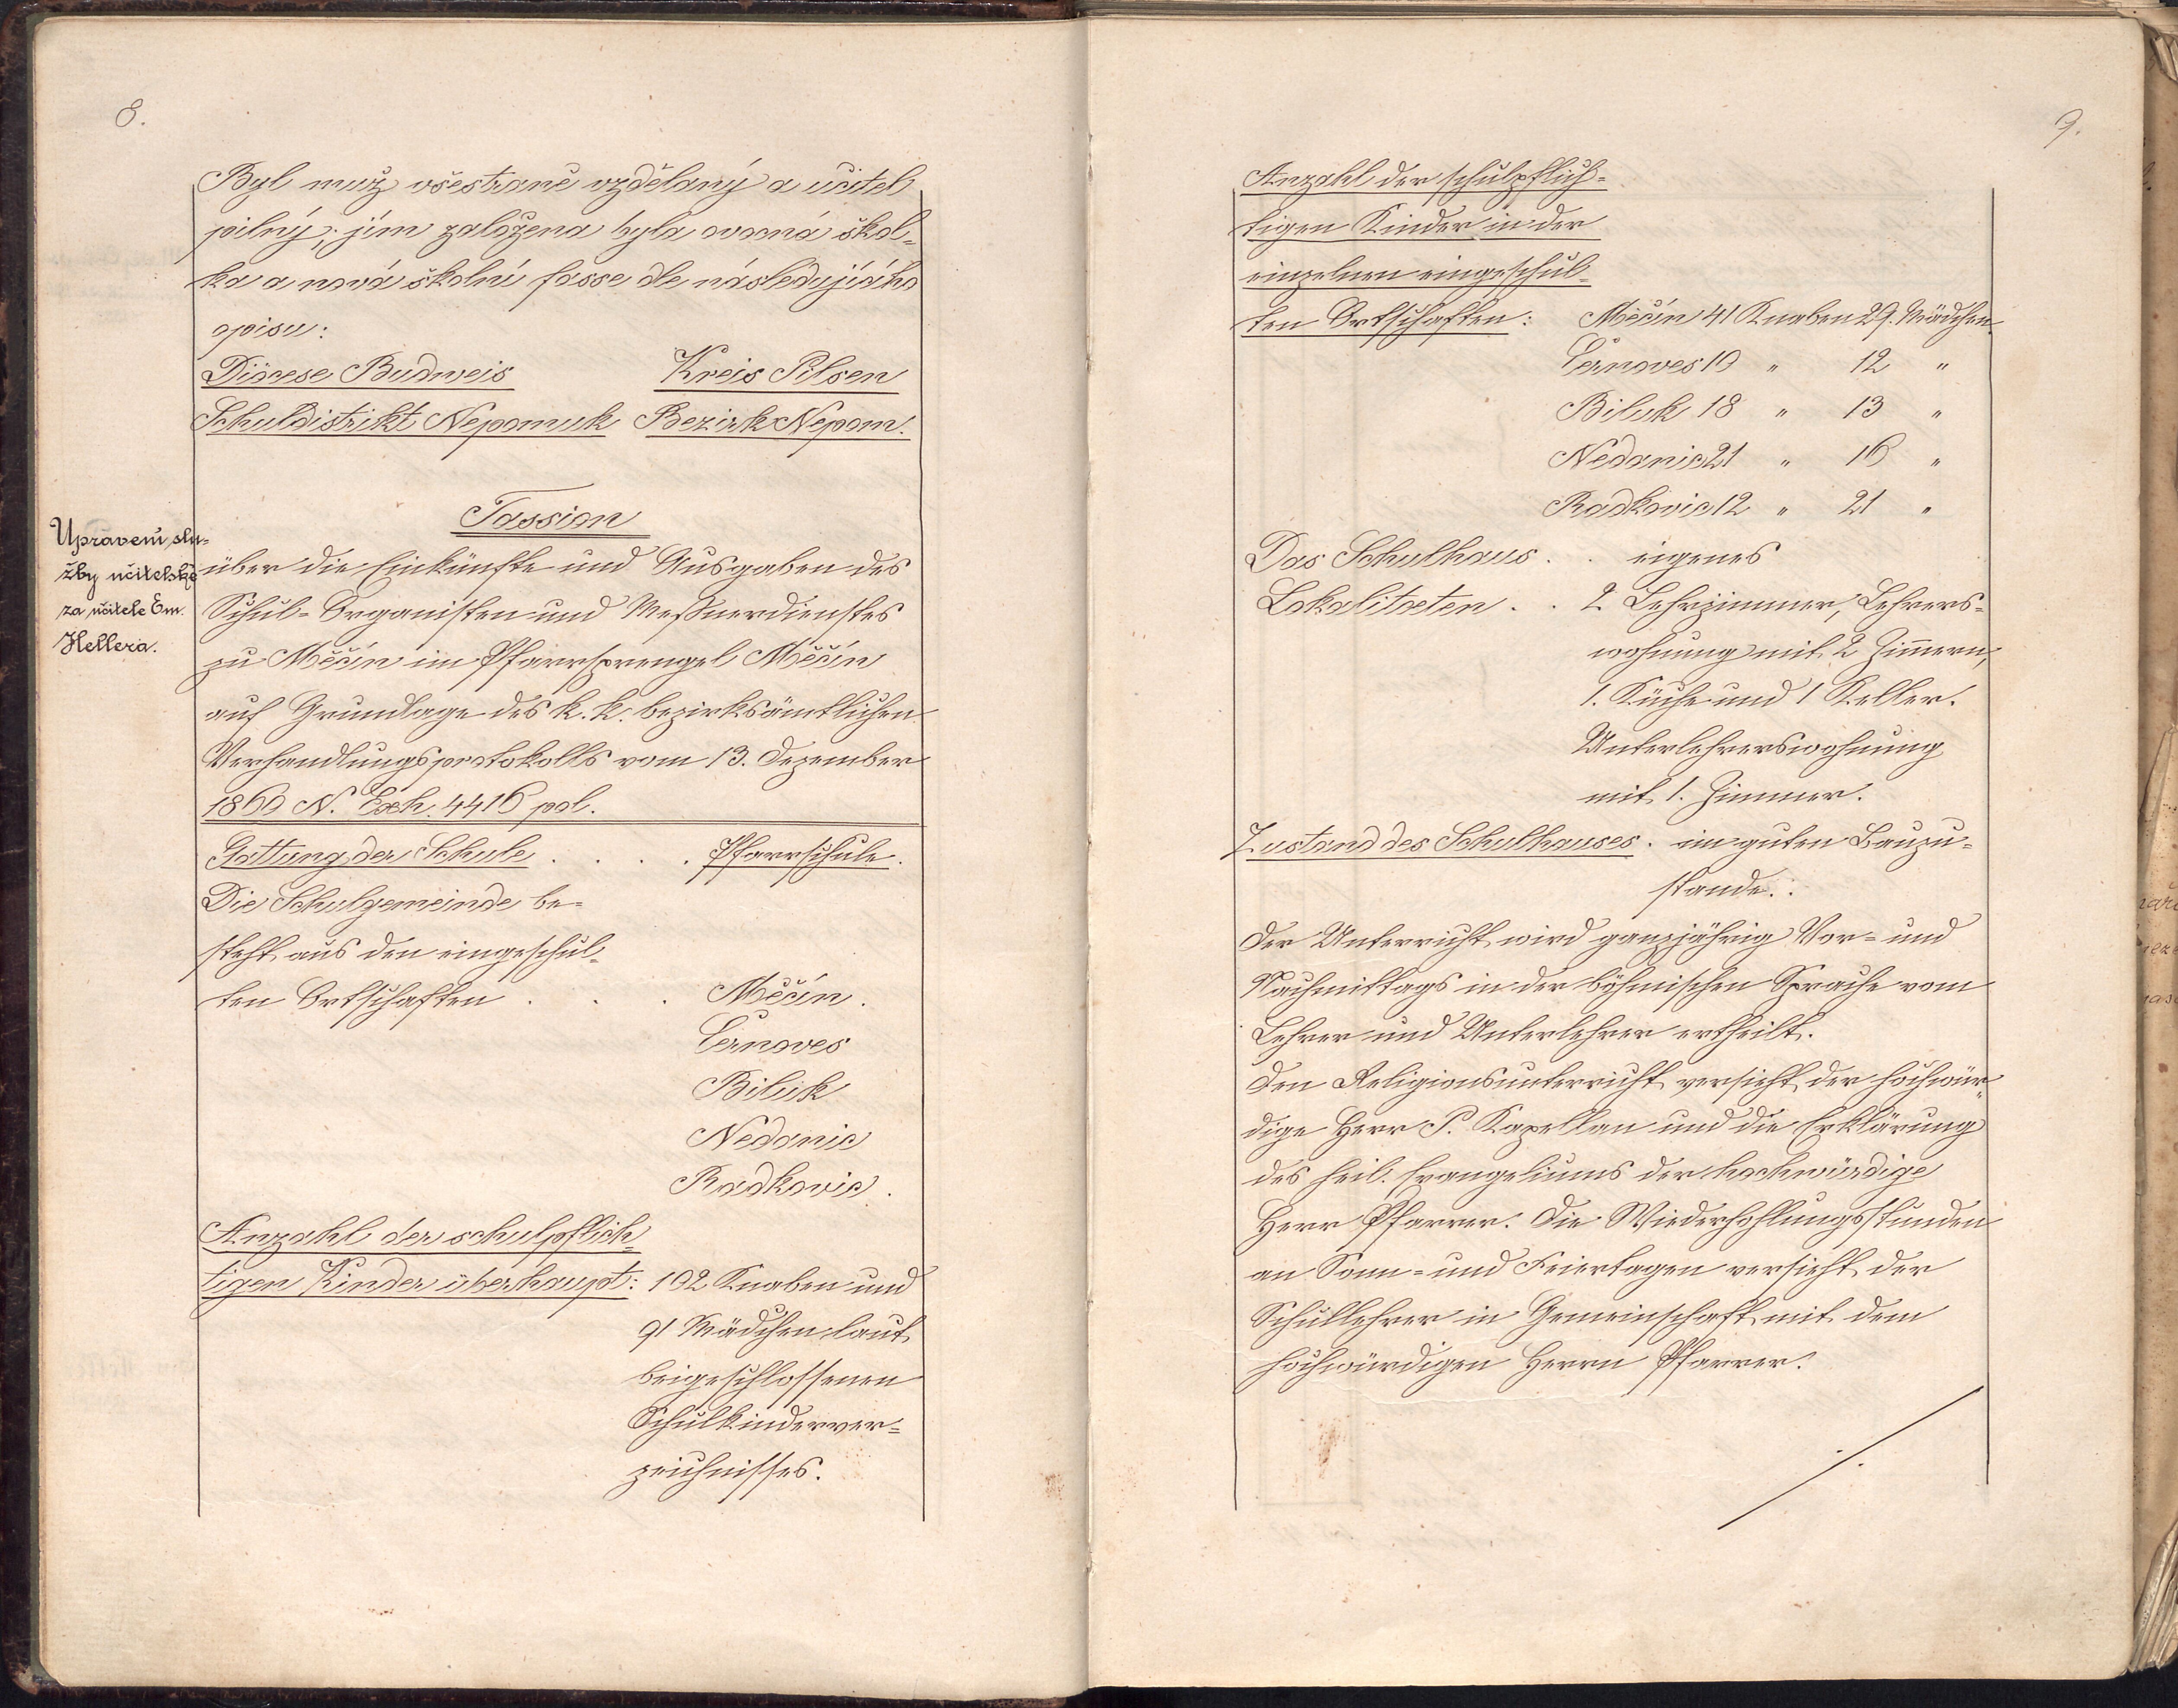 8.
Byl muž všestraně vzdělaný a učitel
pilný; jím založena byla ovocná škol-
ka a nová školní fasse dle následujícího
opisu:
Diöcese Budweis Kreis Pilsen
Schuldistrikt Nepomuk Bezirk Nepom.
Upravení slu-
žby učitelské
za učitele Em.
Hellera.
Fassion
über die Einkünfte und Ausgaben des
Schul-Organisten und Meßnerdienstes
zu Měčín im Pfarrsprengel Měčín
auf Grundlage des k. k. bezirksämtlichen
Verhandlungsprotokolls vom 13. Dezember
1860 N. Exh. 4416 pol.
Gattung der Schule . . . . Pfarrschule.
Die Schulgemeinde be-
steht aus den eingeschul-
ten Ortschaften . . . Měčín.
Černoves
Biluk
Nedanic
Radkovic.
Anzahl der schulpflich-
tigen Kinder überhaupt: 102 Knaben und
91 Mädchen laut
beigeschlossenen
Schulkinderver-
zeichnisses.
9.
Anzahl der schulpflich-
tigen Kinder in der
einzelnen eingeschul-
ten Ortschaften: Měčín 41 Knaben 29. Mädchen
Černoves 10 " 12 "
Biluk 18 " 13 "
Nedanic 21 " 16 "
Radkovic 12 " 21 "
Das Schulhaus . . eigenes
Lokalitæten . . 2 Lehrzimmer, Lehrers-
wohnung mit 2 Zimern,
1. Küche und 1 Keller.
Unterlehrerswohnung
mit 1. Zimmer.
Zustand des Schulhauses . im guten Bauzu-
stande.
Der Unterricht wird ganzjährig Vor- und
Nachmittags in der böhmischen Sprache vom
Lehrer und Unterlehrer ertheilt.
Den Religionsunterricht versieht der hochwür-
dige Herr P. Kapellan und die Erklärung
des heil. Evangeliums der hochwürdige
Herr Pfarrer. Die Wiederhohlungsstunden
an Sonn- und Feiertagen versieht der
Schullehrer in Gemeinschaft mit dem
hochwürdigen Herrn Pfarrer.
./.